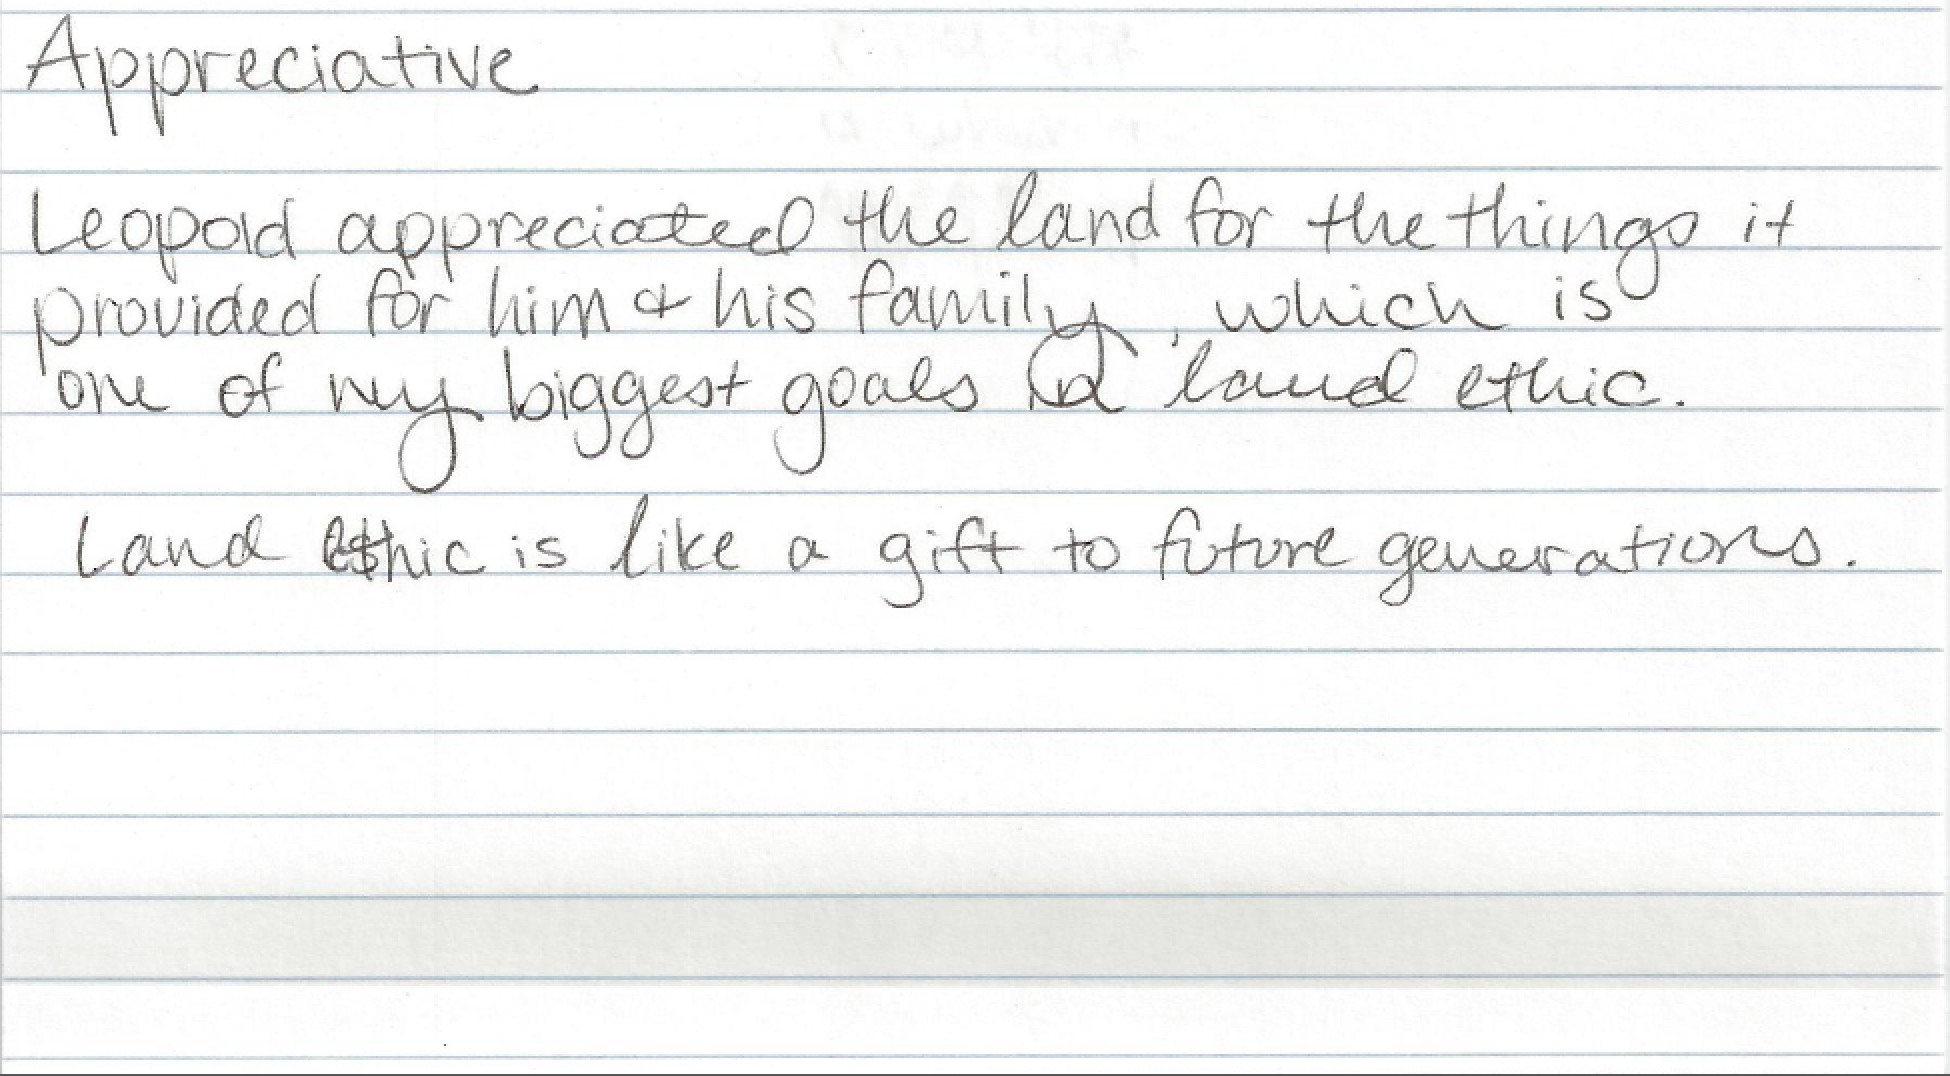 Appreciative
Leopold appreciated the land for the things it
provided for him & his family, which is
one of my biggest goals land ethic.
Land ethic is like a gift to future generations.